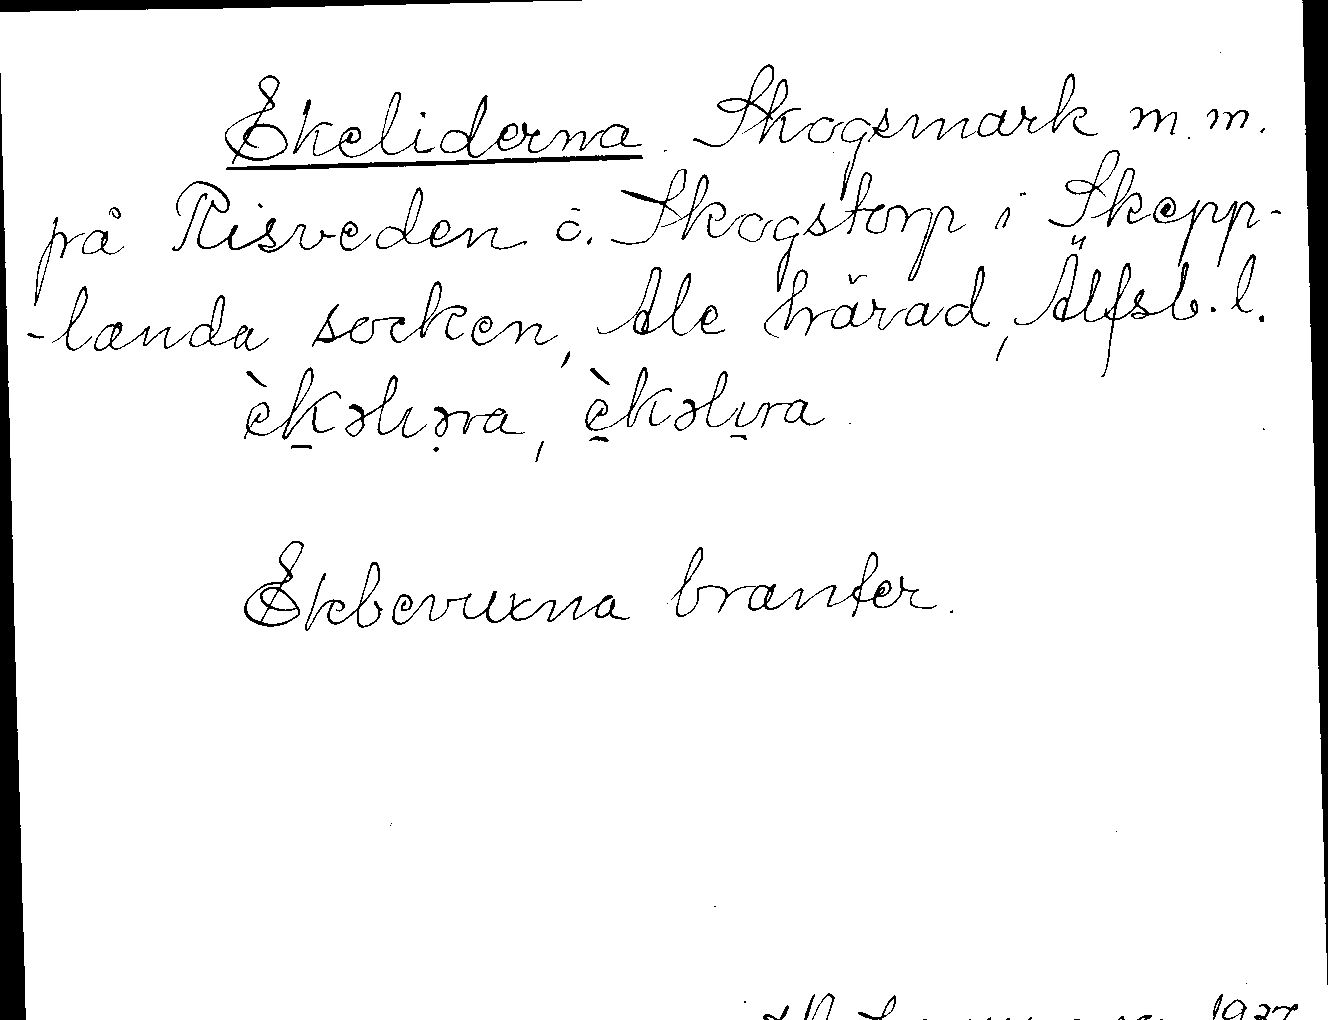 Ekeliderna. Skogsmark m.m.
på Risveden ö. Skogstorp i Skepp-
-landa socken, Ale härad, Älfsb. l.
èḵəlıə̣ra, è̱kəlı̱ra.
Ekbevuxna branter.
1927